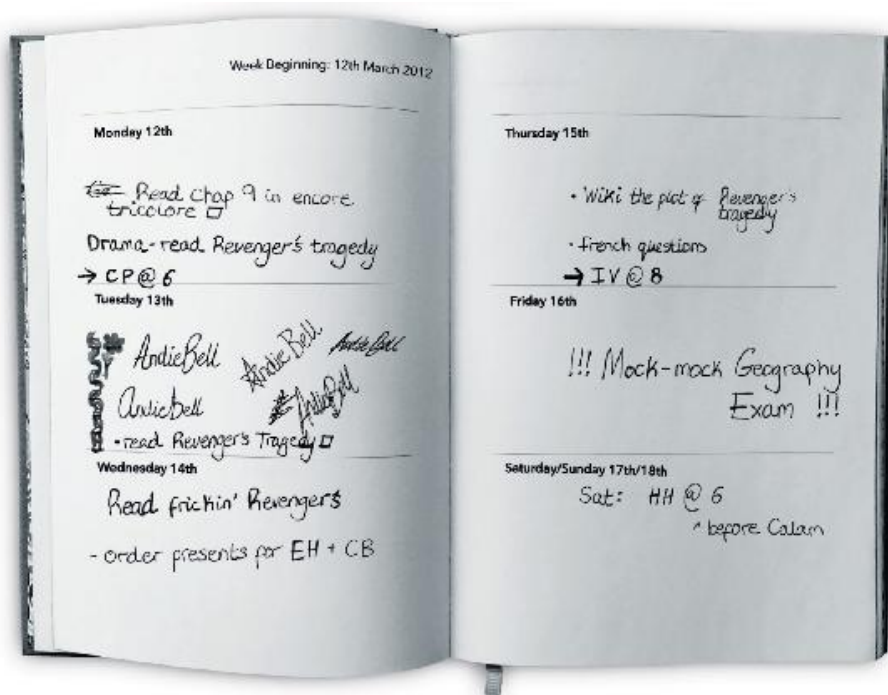 Week Beginning: 12th March 2012
Monday 12th
Read chap 9 in encore
tricolore
Drama - read Revenger's tragedy
→ CP @ 6
Tuesday 13th
AndieBell
AndieBell
AndieBell
AndieBell
AndieBell
• read Revenger's Tragedy
Wednesday 14th
Read frickin' Revengers
- order presents for EH + CB
Thursday 15th
• Wiki the plot of Revenger's
tragedy
• french questions
→ IV @ 8
Friday 16th
!!! Mock-mock Geography
Exam !!!
Saturday/Sunday 17th/18th
Sat: HH @ 6
^ before Calam